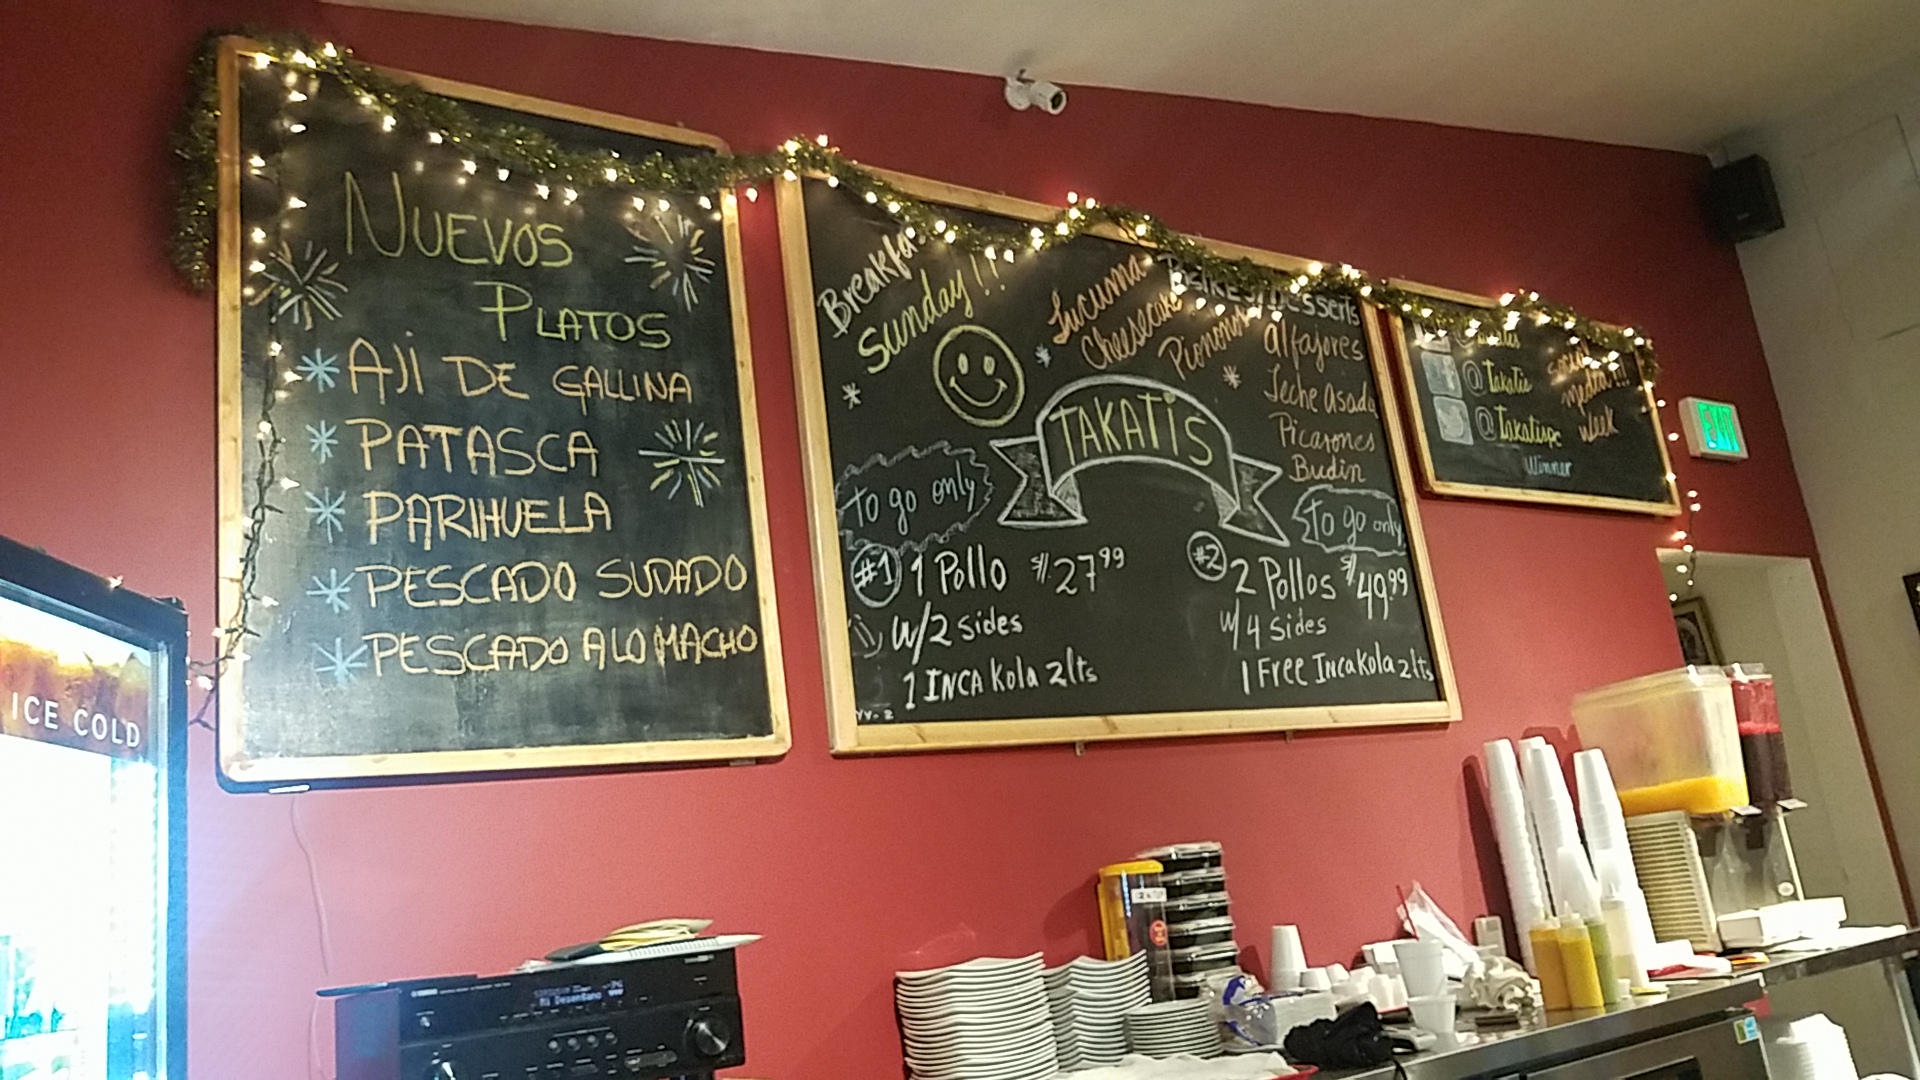 NUEVOS
PLATOS
AJI DE GALLINA
PATASCA
PARIHUELA
PESCADO SUDADO
PESCADO A LO MACHO
Sunday!!
Lucuma
Cheesecake
Alfajores
Leche Asada
Picarones
Budin
TAKATIS
To go only
#1 1 Pollo $/27.99
w/2 sides
1 INCA Kola 2lts
To go only
#2 2 Pollos $/49.99
w/4 sides
1 Free Inca Kola 2lts
@Takatis
@Takatispc
social
media!!!
week
Winner
EXIT
ICE COLD